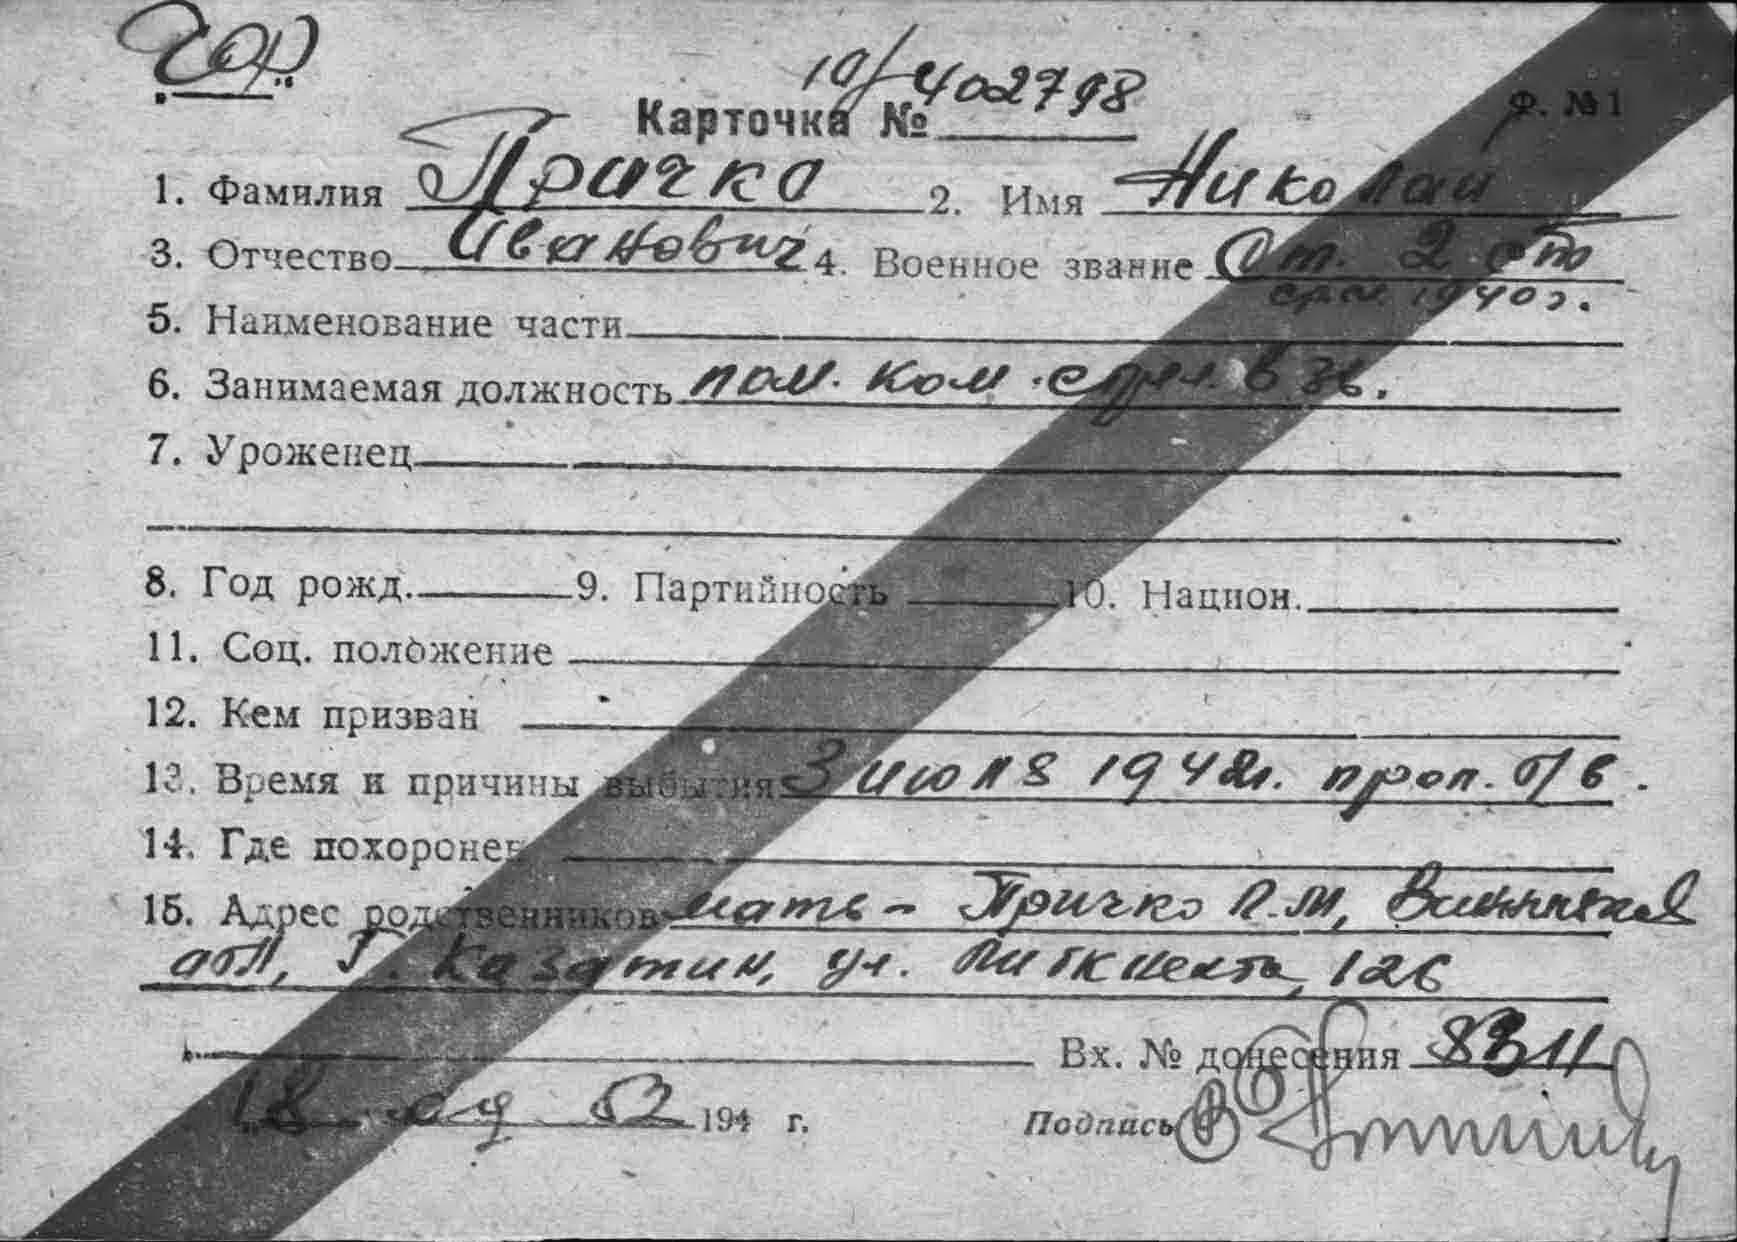 10/402798
Карточка № Ф. №1
1. Фамилия Причко 2. Имя Николай
3. Отчество Иванович 4. Военное звание Ст. 2 ст
срсл 1940 г.
5. Наименование части
6. Занимаемая должность пом. ком. стрел. взв.
7. Уроженец
8. Год рожд. 9. Партийность 10. Национ.
11. Соц. положение
12. Кем призван
13. Время и причины выбытия 3 июля 1942г. проп. б/в.
14. Где похоронен
15. Адрес родственников мать - Причко П.М, Винницкая
обл, г. Казатин, ул. 126
Вх. № донесения 8311
18 52 194 г. Подпись